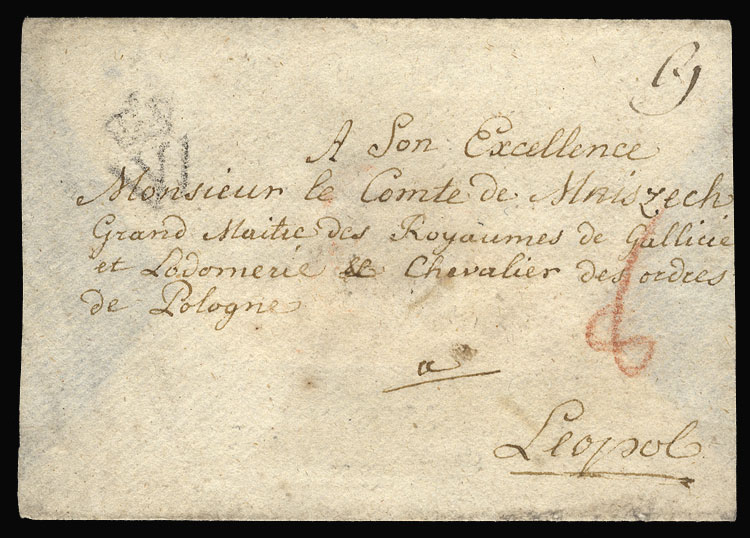 A Son Excellence
Monsieur le Comte de Mniszech
Grand Maitre des Royaumes de Gallicie
et Lodomerie & Chevalier des ordres
de Pologne
a
Leopol